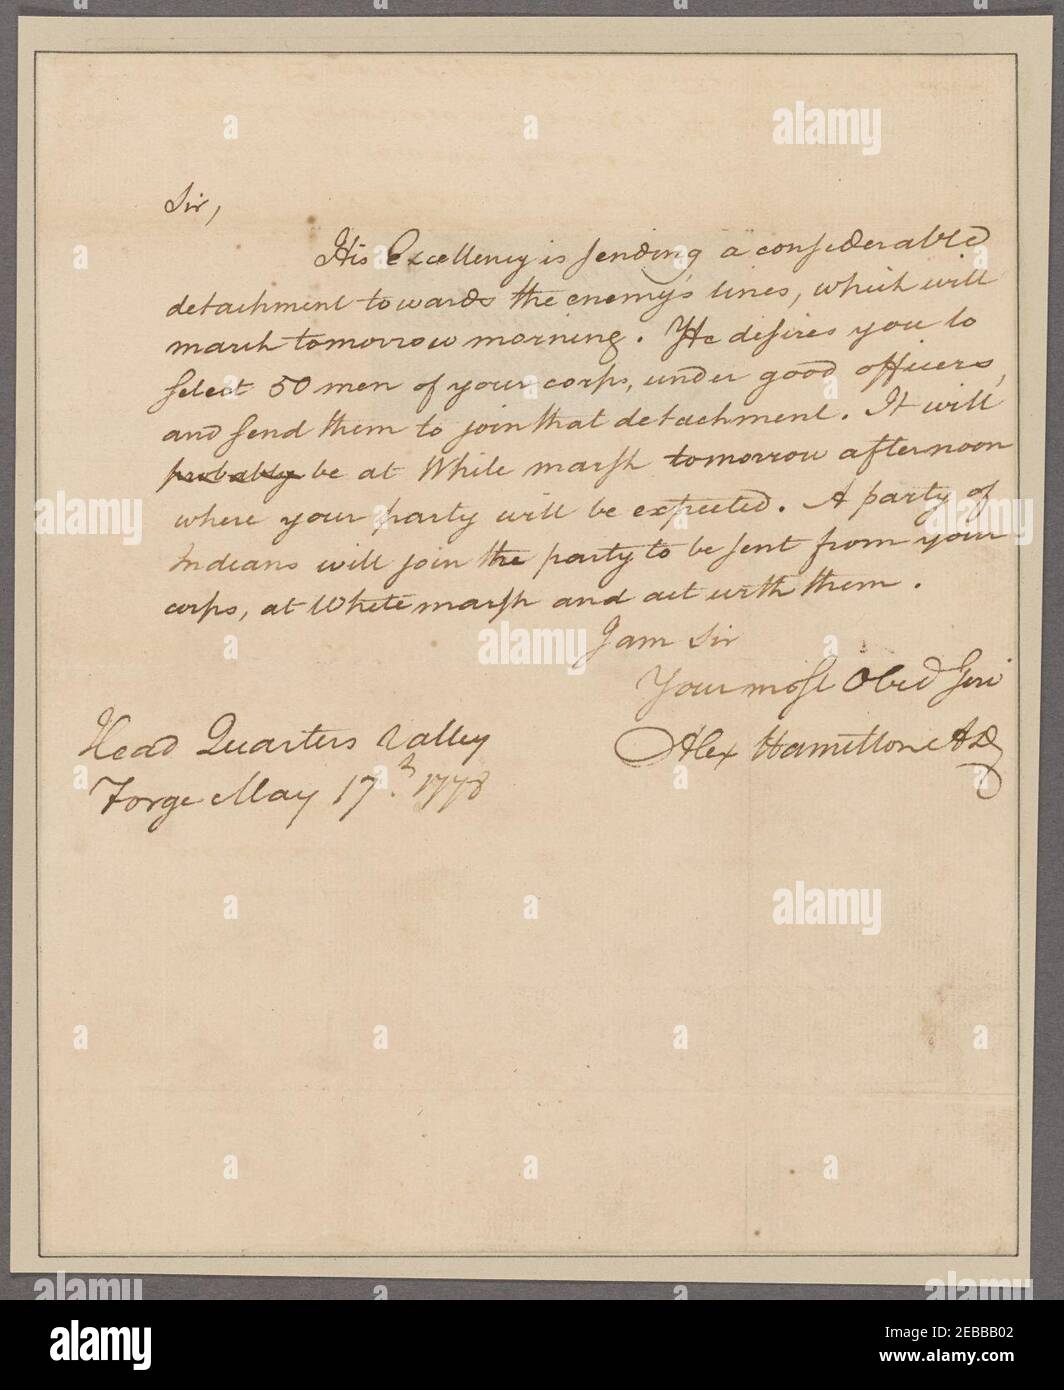 Sir,
His Excellency is sending a considerable
detachment towards the enemy's lines, which will
march tomorrow morning. He desires you to
select 50 men of your corps, under good officers,
and send them to join that detachment. It will
probably be at White marsh tomorrow afternoon
where your party will be expected. A party of
Indians will join the party to be sent from your
corps, at White marsh and act with them.
I am Sir
Your most Obed Serv
Alex Hamilton ADC
Head Quarters Valley
Forge May 17th. 1778
alamy
Image ID: 2EBBB02
www.alamy.com